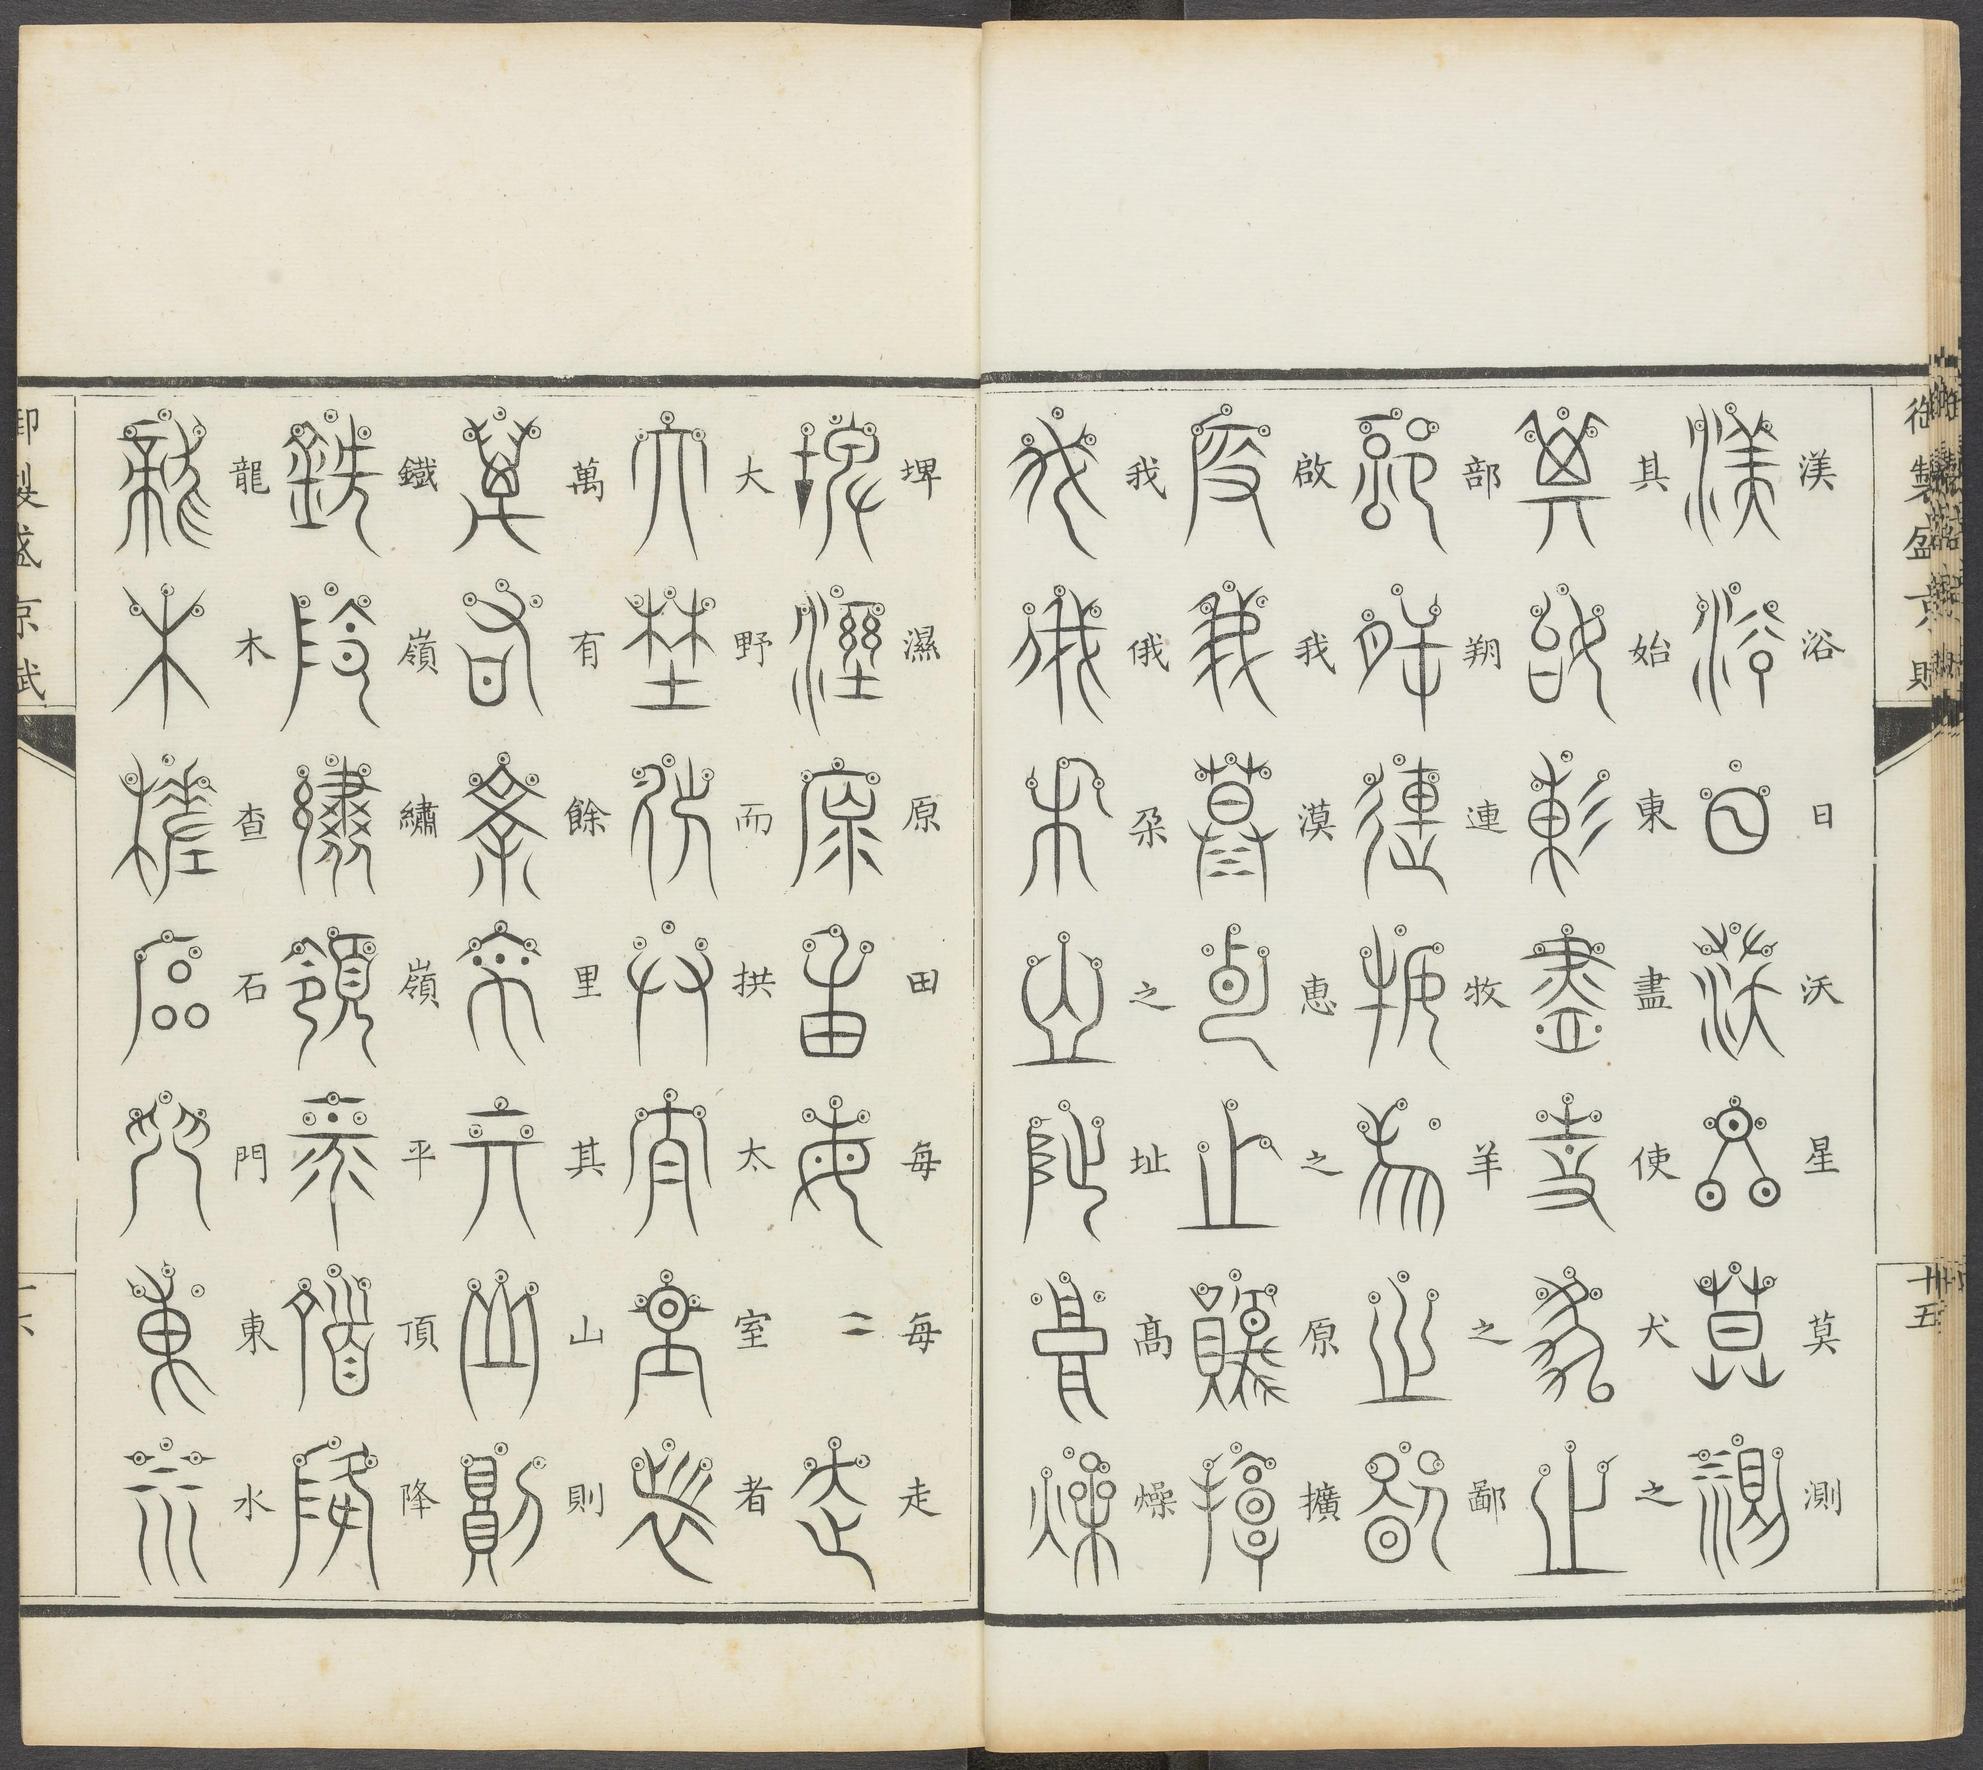 渼浴日沃星莫測
其始東盡使犬之
部朔連牧羊之鄙
啟我漠恵之原擴
我俄朶之址高燥
埤濕原田每每走
大野而拱太室者
萬有餘里其山則
鐵嶺繡嶺平頂降
龍木查石門東水
御製盛京賦